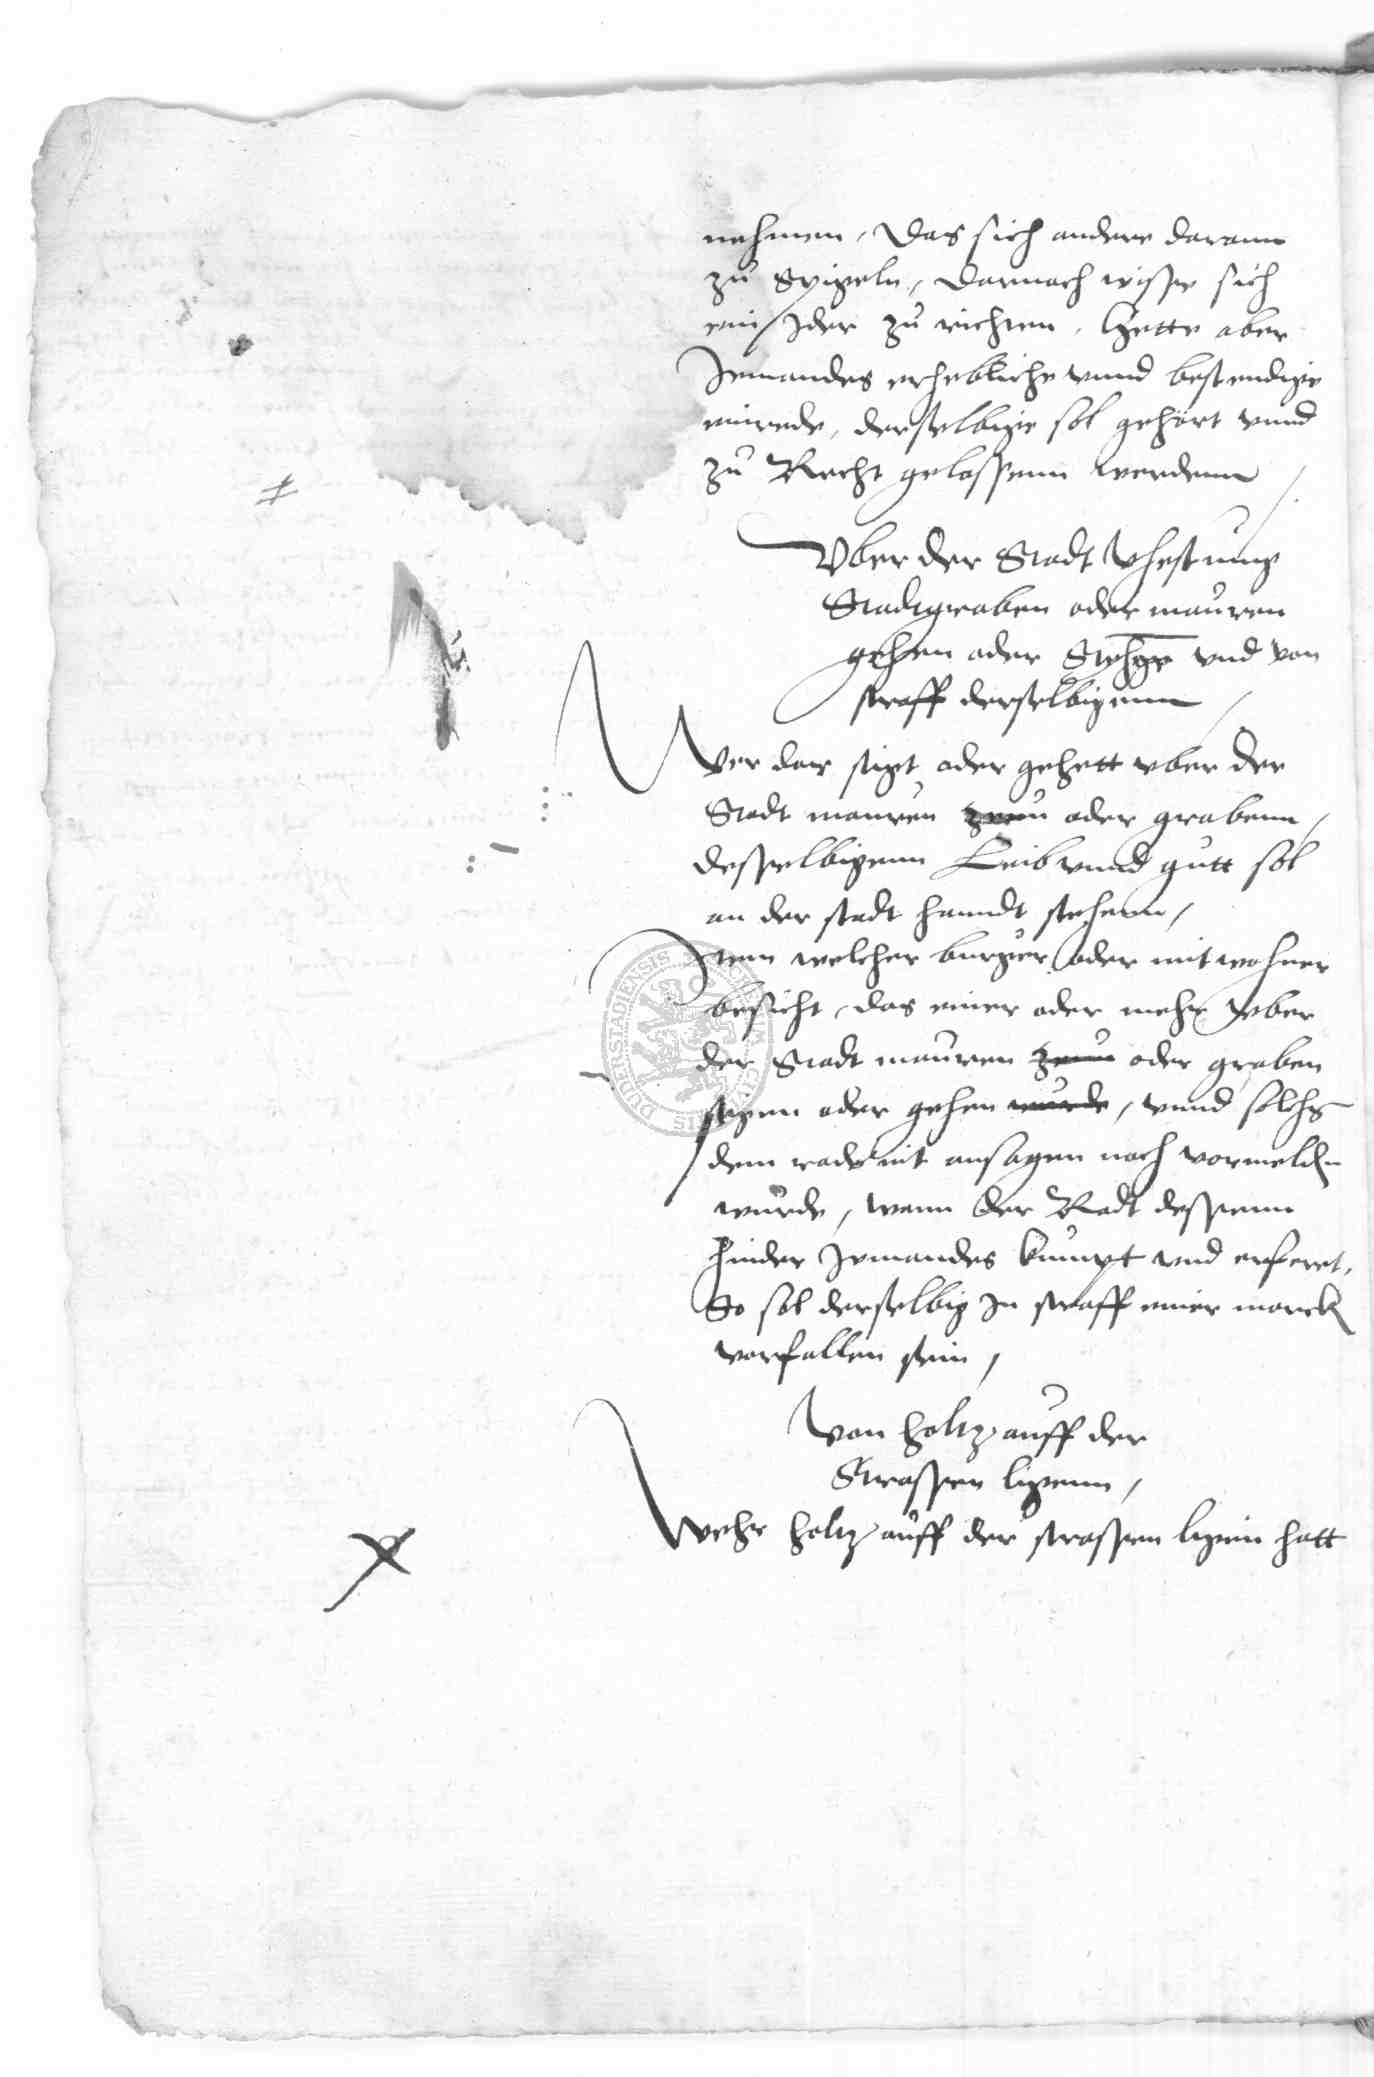 nehmen, das sich andere darann
zu Spigeln, darnach wisse sich
ein Ider zu richten. Hette aber
Jemandes erhebliche vnnd bestendige
einrede, derselbige sol gehört vnnd
zu Recht gelassenn werdenn /
Vber der Stadt Vhestung
Stadtgraben oder mauren
gehen oder und von
straff derselbigenn /
Wer dar stigt oder gehett vber der
Stadt mauren zeun oder grabenn /
desselbigenn Leib vnnd gutt sol
an der stadt hanndt stehenn /
Item welcher burger oder mitwohner
besicht, das einer oder mehr vber
der Stadt mauren zeun oder graben
stigen oder gehen wurde, vnnd solchs
dem rade nit ansagen noch vormelden
wurde, wann der Radt dessenn
hinder Jemandes kumpt vnd erferet,
So sol derselbig In straff einer marck
vorfallen sein /
Von holtz auff der
Strassen ligenn /
Wehr holtz auff der strassen ligen hatt
DUDERSTADIENSIS CIVITATIS